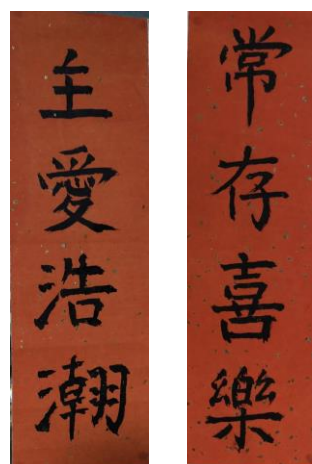 常存喜樂
主愛浩瀚